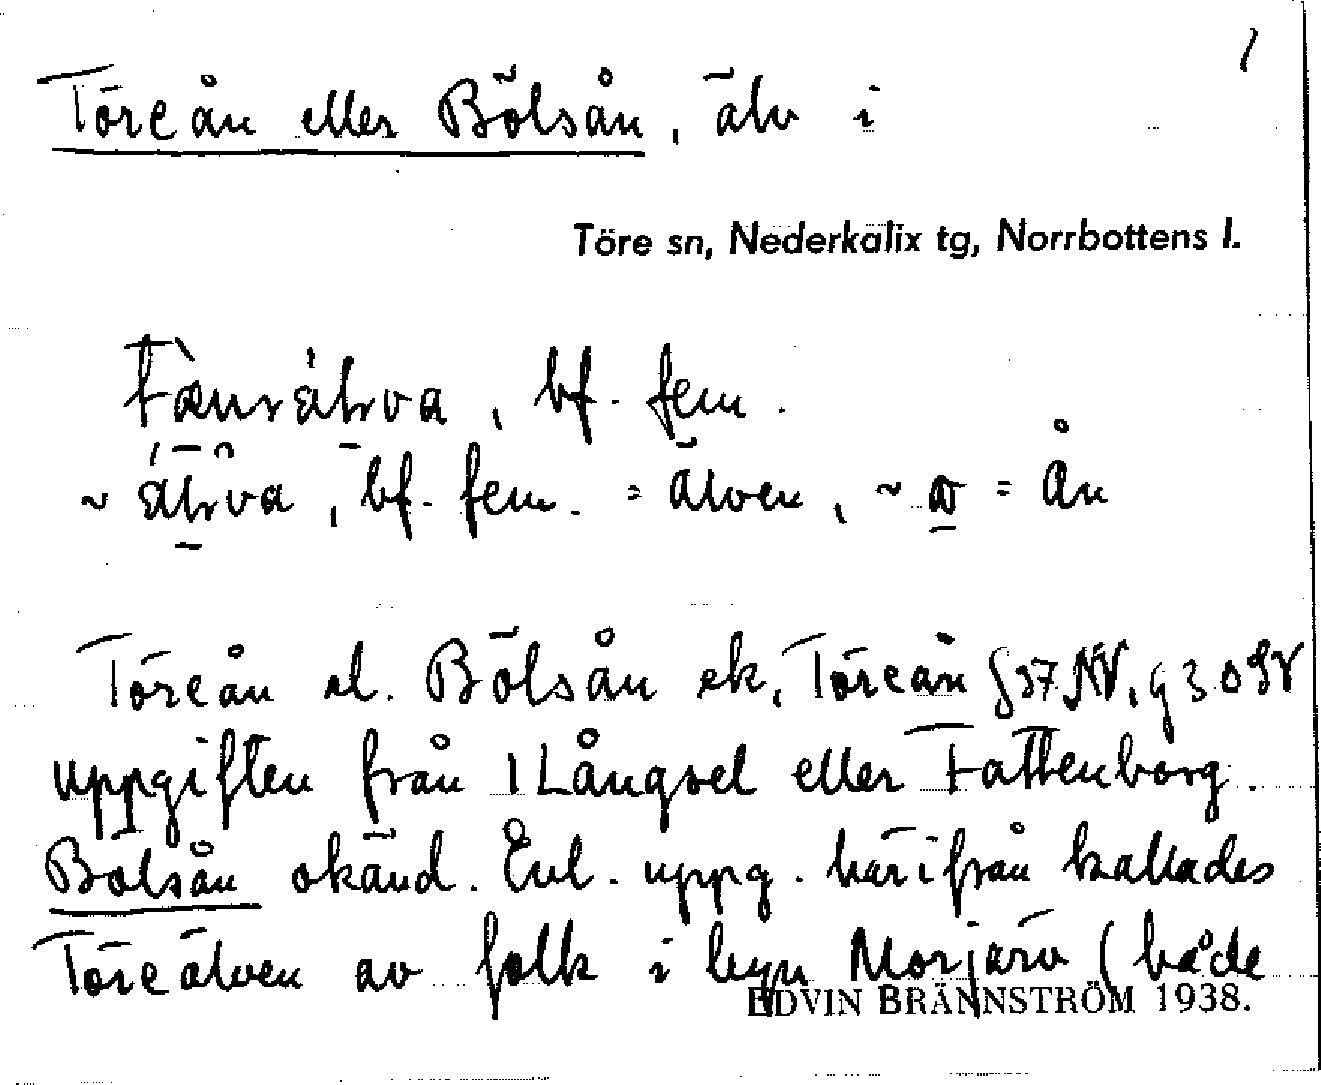 1
Töreån eller Bölsån, älv i
Töre sn, Nederkalix tg, Norrbottens l.
bf. fem.
bf. fem. = älven, ~ = ån
Töreån el. Bölsån ek, Töreån §37 NV, g 3 o SV
uppgiften från 1 Långsel eller Fattenborg.
Bölsån okänd. Enl. uppg. härifrån kallades
Töreälven av folk i byn Morjärv (både
EDVIN BRÄNNSTRÖM 1938.